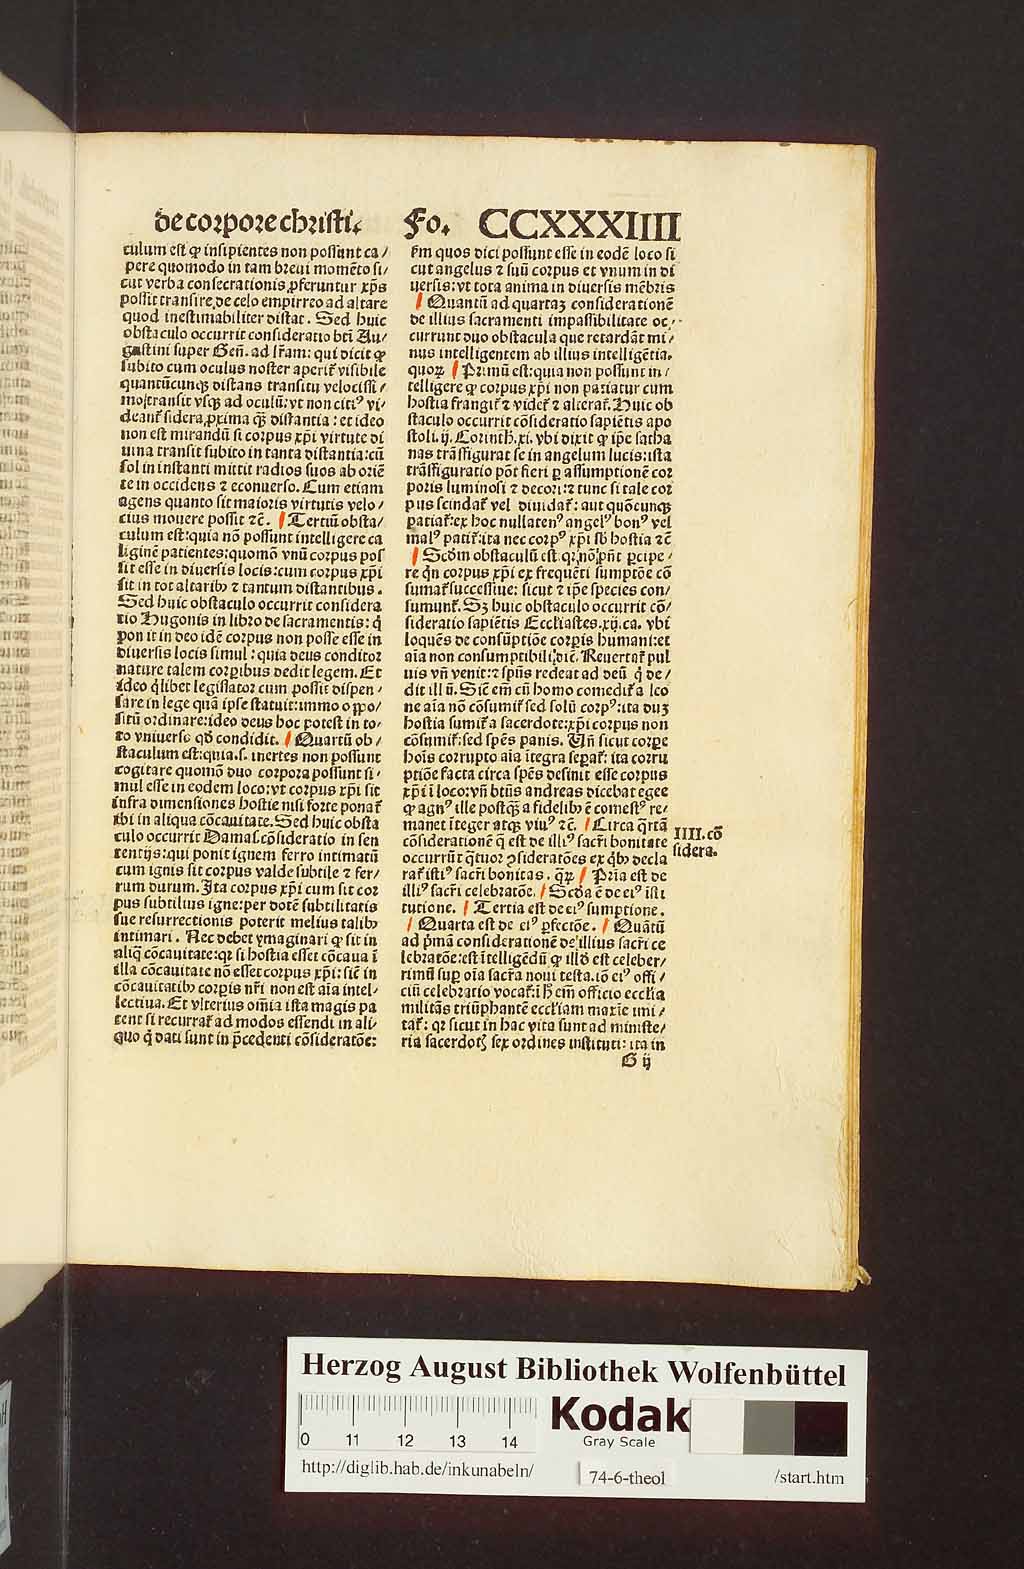 de corpore christi. Fo. CCXXXIIII
culum est ꝙ insipientes non possunt ca/
pere quomodo in tam breui momēto si/
cut verba consecrationis ꝓferuntur xp̄s
possit transire de celo empirreo ad altare
quod inestimabiliter distat. Sed huic
obstaculo occurrit consideratio bt̄i Au/
gustini super Gen̄. ad lr̄am: qui dicit ꝙ
subito cum oculus noster aperit̄ visibile
quantūcunqꝫ distans transitu velocissi/
mo transit vsqꝫ ad oculū: vt non citiꝰ vi/
deant̄ sidera ꝓxima qꝫ̄ distantia: et ideo
non est mirandū si corpus xp̄i virtute di
uina transit subito in tanta distantia: cū
sol in instanti mittit radios suos ab oriē
te in occidens ⁊ econuerso. Cum etiam
agens quanto sit maioris virtutis velo/
cius mouere possit ⁊c̄. Tertiū obsta/
culum est: quia nō possunt intelligere ca
liginē patientes: quomō vnū corpus pos
sit esse in diuersis locis: cum corpus xp̄i
sit in tot altaribꝫ ⁊ tantum distantibus.
Sed huic obstaculo occurrit considera
tio Hugonis in libro de sacramentis: q̄
pon it in deo idē corpus non posse esse in
diuersis locis simul: quia deus conditor
nature talem corꝑibus dedit legem. Et
ideo q̄libet legislator cum possit dispen/
sare in lege quā ipse statuit: immo oꝑpo/
sitū ordinare: ideo deus hoc potest in to/
to vniuerso qd̄ condidit. Quartū ob/
staculum est: quia .s. inertes non possunt
cogitare quomō duo corpora possunt si/
mul esse in eodem loco: vt corpus xp̄i sit
infra dimensiones hostie nisi forte ponat̄
ibi in aliqua cōcauitate. Sed huic obsta
culo occurrit Damas. cōsideratio in sen
tentijs: qui ponit ignem ferro intimatū
cum ignis sit corpus valde subtile ⁊ fer/
rum durum. Ita corpus xp̄i cum sit cor
pus subtilius igne: per dotē subtilitatis
sue resurrectionis poterit melius talibꝫ
intimari. Nec debet ymaginari ꝙ sit in
aliq̄ cōcauitate: qꝛ si hostia esset cōcaua ī
illa cōcauitate nō esset corpus xp̄i: sic̄ in
cōcauitatibꝫ corꝑis nr̄i non est aīa intel/
lectiua. Et vlterius om̄ia ista magis pa
tent si recurrat̄ ad modos essendi in ali/
quo q̄ dati sunt in p̄cedenti cōsideratōe:
fm̄ quos dici possunt esse in eodē loco si
cut angelus ⁊ suū corpus et vnum in di
uersis: vt tota anima in diuersis mēbris
Quantū ad quartaꝫ considerationē
de illius sacramenti impassibilitate oc/
currunt duo obstacula que retardāt mi/
nus intelligentem ab illius intelligētia.
quoꝝ Primū est: quia non possunt in/
telligere ꝙ corpus xp̄i non patiatur cum
hostia frangit̄ ⁊ videt̄ ⁊ alterat̄. Huic ob
staculo occurrit cōsideratio sapiētis apo
stoli. ij. Corinth. xi. vbi dixit ꝙ ip̄e satha
nas trāsfigurat se in angelum lucis: ista
trāsfiguratio pōt fieri ꝑ assumptionē cor
poris luminosi ⁊ decori: ⁊ tunc si tale cor
pus scindat̄ vel diuidat̄: aut quōcunqꝫ
patiat̄: ex hoc nullatenꝰ angelꝰ bonꝰ vel
malꝰ patit̄: ita nec corpꝰ xp̄i sb̄ hostia ⁊c̄
Scd̄m obstaculū est. qꝛ nō pn̄t ꝑcipe/
re qn̄ corpus xp̄i ex frequēti sumptōe cō
sumat̄ successiue: sicut ⁊ ip̄e species con/
sumunt̄. Sꝫ huic obstaculo occurrit cō/
sideratio sapiētis Eccl̄iastes. xij. ca. vbi
loquēs de consūptiōe corꝑis humani: et
aīa non consumptibili: dic̄. Reuertat̄ pul
uis vn̄ venit: ⁊ spūs redeat ad deū q̄ de/
dit illū. Sic̄ em̄ cū homo comedit̄ a leo
ne aīa nō cōsumit̄ sed solū corpꝰ: ita dūꝫ
hostia sumit̄ a sacerdote: xp̄i corpus non
cōsumit̄: sed spēs panis. Vn̄ sicut corꝑe
hoīs corrupto aīa ītegra seꝑat̄: ita corru
ptiōe facta circa spēs desinit esse corpus
xp̄i ī loco: vn̄ btūs andreas dicebat egee
ꝙ agnꝰ ille postqꝫ̄ a fidelibꝫ ē comestꝰ re/
manet īteger atqꝫ viuꝰ ⁊c̄. Circa q̄rtā
cōsiderationē q̄ est de illiꝰ sacr̄i bonitate
occurrūt q̄tuor ꝯsideratōes ex qbꝫ decla
rat̄ istiꝰ sacr̄i bonitas. qꝝ̄ Prīa est de
illiꝰ sacr̄i celebratōe. Scd̄a ē de eiꝰ īsti
tutione. Tertia est de eiꝰ sumptione.
Quarta est de eiꝰ ꝑfectōe. Quātū
ad p̄mā considerationē de illius sacr̄i ce
lebratōe: est ītelligēdū ꝙ illd̄ est celeber/
rimū suꝑ oīa sacr̄a noui testa. iō eiꝰ offi/
ciū celebratio vocat̄: ī h̄ em̄ officio eccl̄ia
militās triūphantē eccl̄iam maxīe imi/
tat̄: qꝛ sicut in hac vita sunt ad ministe/
ria sacerdotꝭ sex ordines instituti: ita in
G ij
IIII. cō
sidera.
Herzog August Bibliothek Wolfenbüttel
Kodak
Gray Scale
0 11 12 13 14
http://diglib.hab.de/inkunabeln/ 74-6-theol /start.htm